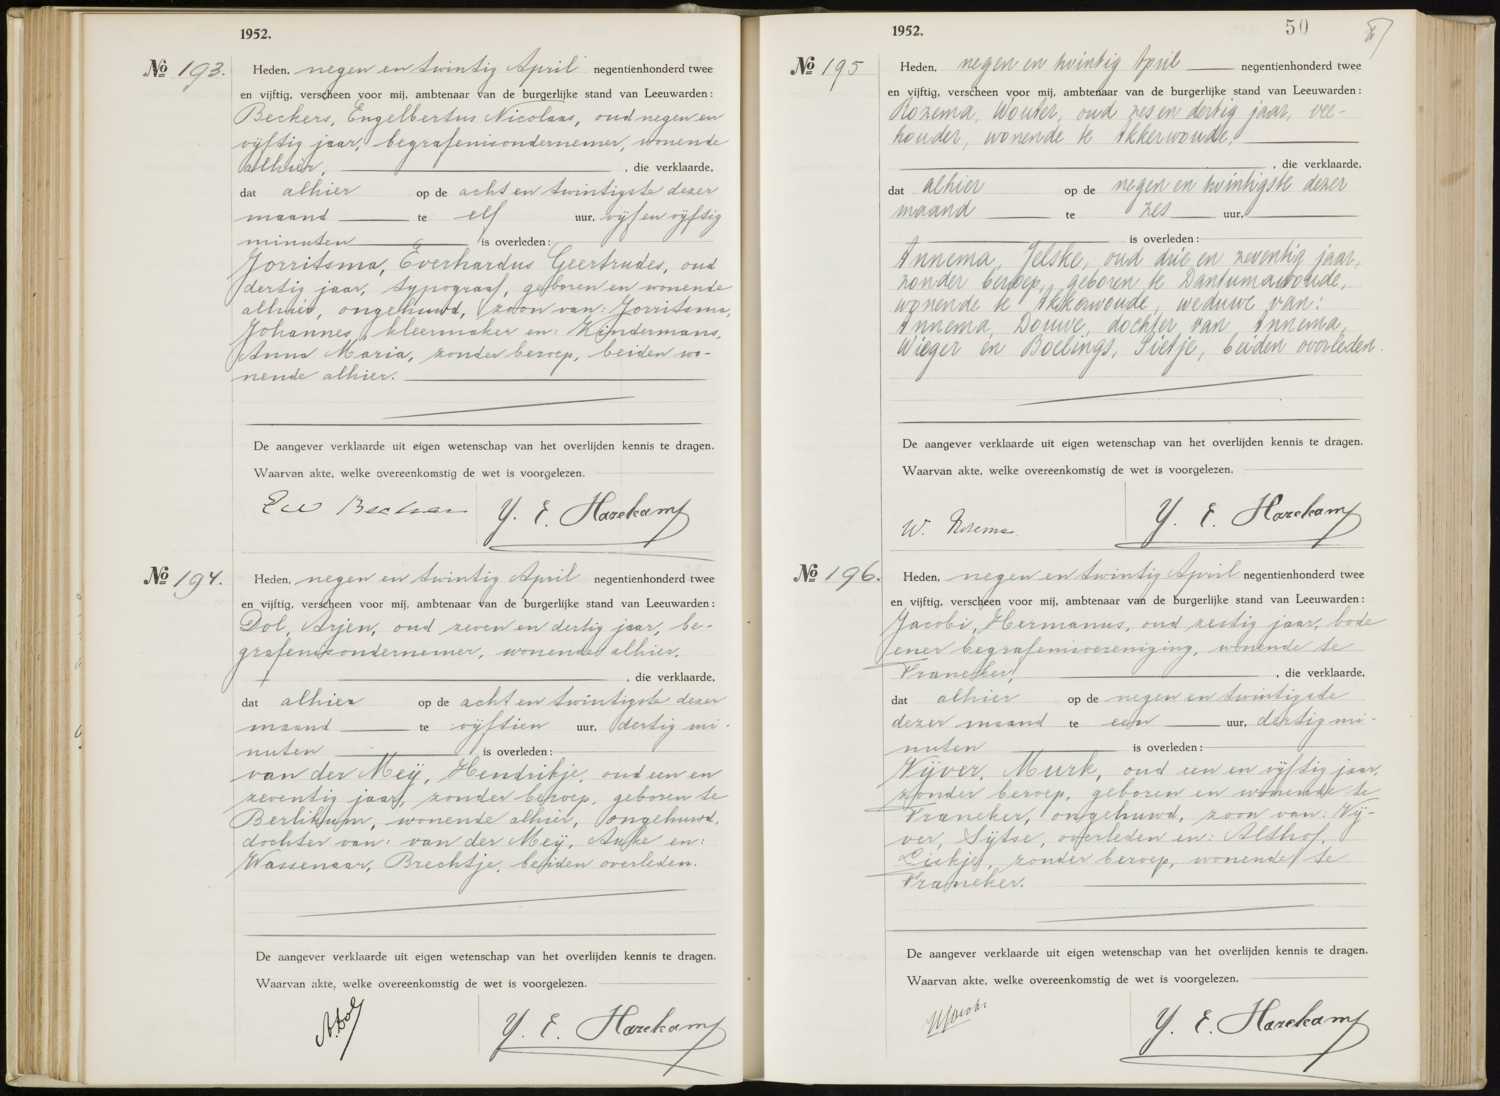 1952.
No 193. Heden, negen en twintig April negentienhonderd twee
en vijftig, verscheen voor mij, ambtenaar van de burgerlijke stand van Leeuwarden:
Beckers, Engelbertus Nicolaas, oud negen en
vijftig jaar, begrafenisondernemer, wonende
alhier, , die verklaarde,
dat alhier op de acht en twintigste dezer
maand te elf uur, vijf en vijftig
minuten is overleden:
Jorritsma, Everhardus Geertrudes, oud
dertig jaar, typograaf, geboren en wonende
alhier, ongehuwd, zoon van: Jorritsma,
Johannes, kleermaker en: Kindermans,
Anna Maria, zonder beroep, beiden wo-
nende alhier.
De aangever verklaarde uit eigen wetenschap van het overlijden kennis te dragen.
Waarvan akte, welke overeenkomstig de wet is voorgelezen.
Beckers Y. E. Hazekamp
No 194. Heden, negen en twintig April negentienhonderd twee
en vijftig, verscheen voor mij, ambtenaar van de burgerlijke stand van Leeuwarden:
Dol, Arjen, oud zeven en dertig jaar, be-
grafenisondernemer, wonende alhier.
, die verklaarde,
dat alhier op de acht en twintigste dezer
maand te vijftien uur, dertig mi-
nuten is overleden:
van der Meij, Hendrikje, oud een en
zeventig jaar, zonder beroep, geboren te
Berlikum, wonende alhier, ongehuwd,
dochter van: van der Meij, Auke en:
Wassenaar, Brechtje, beiden overleden.
De aangever verklaarde uit eigen wetenschap van het overlijden kennis te dragen.
Waarvan akte, welke overeenkomstig de wet is voorgelezen.
A. Dol Y. E. Hazekamp
1952. 50
No 195 Heden, negen en twintig April negentienhonderd twee
en vijftig, verscheen voor mij, ambtenaar van de burgerlijke stand van Leeuwarden:
Rozema, Wouter, oud zes en dertig jaar, vee-
houder, wonende te Akkerwoude,
, die verklaarde,
dat alhier op de negen en twintigste dezer
maand te zes uur,
is overleden:
Annema, Jelske, oud drie en zeventig jaar,
zonder beroep, geboren te Dantumawoude,
wonende te Akkerwoude, weduwe van:
Annema, Douwe, dochter van Annema,
Wieger en Boelings, Sietje, beiden overleden.
De aangever verklaarde uit eigen wetenschap van het overlijden kennis te dragen.
Waarvan akte, welke overeenkomstig de wet is voorgelezen.
W. Rozema Y. E. Hazekamp
No 196. Heden, negen en twintig April negentienhonderd twee
en vijftig, verscheen voor mij, ambtenaar van de burgerlijke stand van Leeuwarden:
Jacobi, Hermanus, oud zestig jaar, bode
ener begrafenisvereniging, wonende te
Franeker, , die verklaarde,
dat alhier op de negen en twintigste
dezer maand te een uur, dertig mi-
nuten is overleden:
Wijver, Murk, oud een en vijftig jaar,
zonder beroep, geboren en wonende te
Franeker, ongehuwd, zoon van: Wij-
ver, Sijtse, overleden en: Althof,
Liekje, zonder beroep, wonende te
Franeker.
De aangever verklaarde uit eigen wetenschap van het overlijden kennis te dragen.
Waarvan akte, welke overeenkomstig de wet is voorgelezen.
HJacobi Y. E. Hazekamp